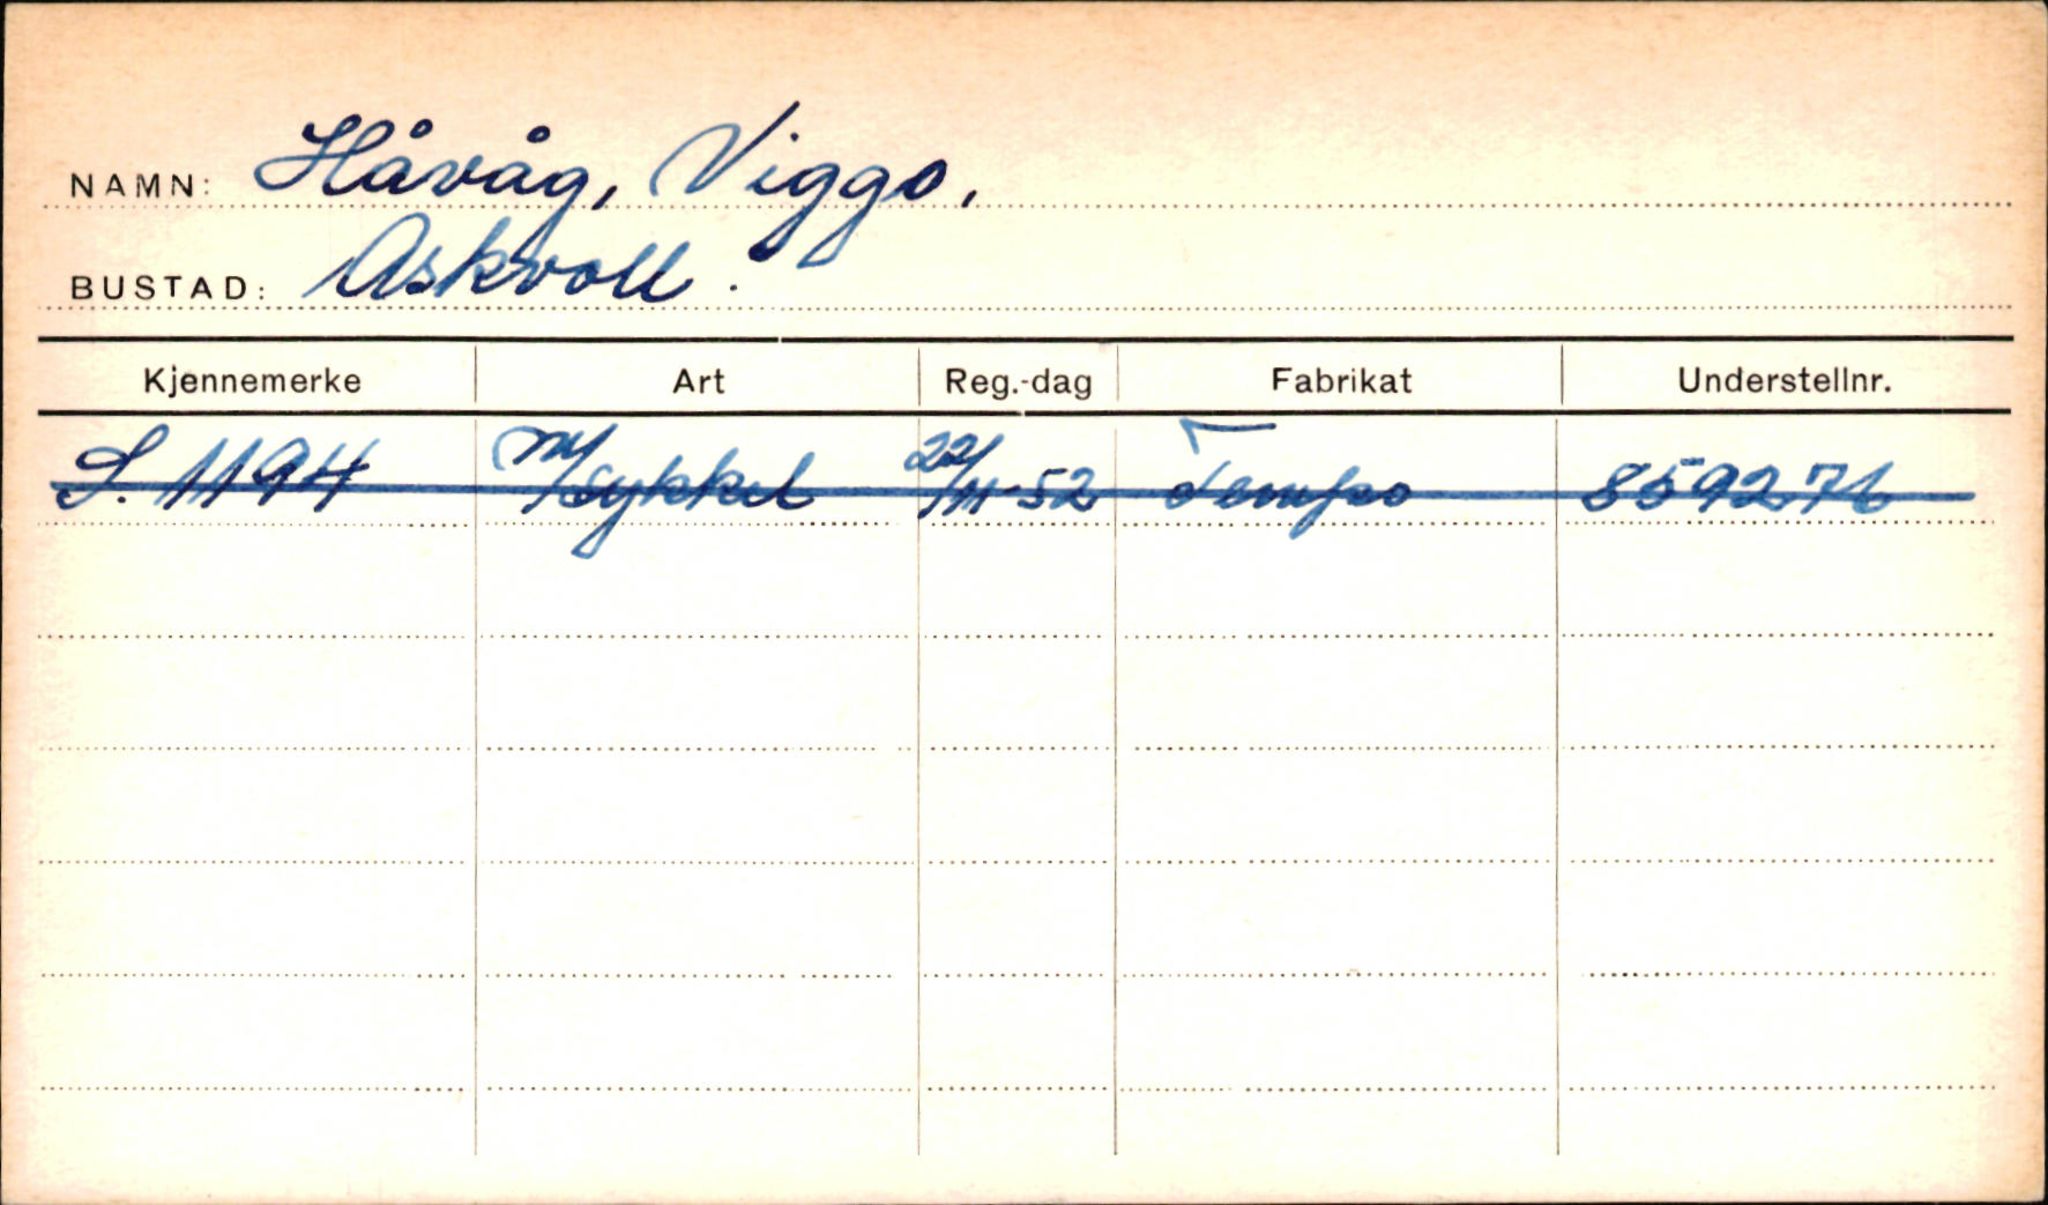 NAMN: Håvåg, Viggo,
BUSTAD: Askvoll.
Kjennemerke Art Reg.-dag Fabrikat Understellnr.
S. 1194 m/sykkel 22/11-52 Tempo 8592276